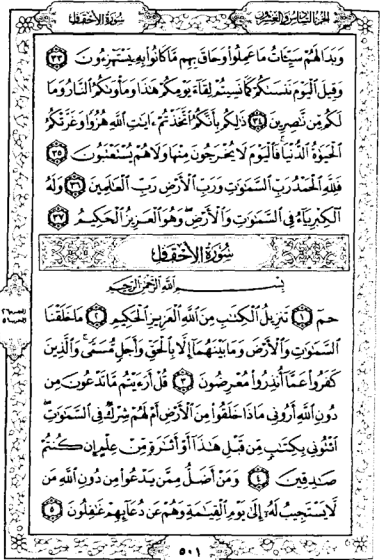 الجزء السادس والعشرون
سورة الأحقاف
وَبَدَا لَهُمْ سَيِّئَاتُ مَا عَمِلُوا وَحَاقَ بِهِم مَّا كَانُوا بِهِ يَسْتَهْزِءُونَ ٣٣
وَقِيلَ الْيَوْمَ نَنسَىٰكُمْ كَمَا نَسِيتُمْ لِقَآءَ يَوْمِكُمْ هَٰذَا وَمَأْوَىٰكُمُ النَّارُ وَمَا
لَكُم مِّن نَّٰصِرِينَ ٣٤ ذَٰلِكُم بِأَنَّكُمُ اتَّخَذْتُمْ ءَايَٰتِ اللَّهِ هُزُوًا وَغَرَّتْكُمُ
الْحَيَوٰةُ الدُّنْيَا فَالْيَوْمَ لَا يُخْرَجُونَ مِنْهَا وَلَا هُمْ يُسْتَعْتَبُونَ ٣٥
فَلِلَّهِ الْحَمْدُ رَبِّ السَّمَٰوَٰتِ وَرَبِّ الْأَرْضِ رَبِّ الْعَٰلَمِينَ ٣٦ وَلَهُ
الْكِبْرِيَآءُ فِي السَّمَٰوَٰتِ وَالْأَرْضِ وَهُوَ الْعَزِيزُ الْحَكِيمُ ٣٧
سُورَةُ الْأَحْقَافِ
بِسْمِ اللَّهِ الرَّحْمَٰنِ الرَّحِيمِ
حمٓ ١ تَنزِيلُ الْكِتَٰبِ مِنَ اللَّهِ الْعَزِيزِ الْحَكِيمِ ٢ مَا خَلَقْنَا
السَّمَٰوَٰتِ وَالْأَرْضَ وَمَا بَيْنَهُمَآ إِلَّا بِالْحَقِّ وَأَجَلٍ مُّسَمًّى وَالَّذِينَ
كَفَرُوا عَمَّآ أُنذِرُوا مُعْرِضُونَ ٣ قُلْ أَرَءَيْتُم مَّا تَدْعُونَ مِن
دُونِ اللَّهِ أَرُونِي مَاذَا خَلَقُوا مِنَ الْأَرْضِ أَمْ لَهُمْ شِرْكٌ فِي السَّمَٰوَٰتِ
ائْتُونِي بِكِتَٰبٍ مِّن قَبْلِ هَٰذَآ أَوْ أَثَٰرَةٍ مِّنْ عِلْمٍ إِن كُنتُمْ
صَٰدِقِينَ ٤ وَمَنْ أَضَلُّ مِمَّن يَدْعُوا مِن دُونِ اللَّهِ مَن
لَّا يَسْتَجِيبُ لَهُ إِلَىٰ يَوْمِ الْقِيَٰمَةِ وَهُمْ عَن دُعَآئِهِمْ غَٰفِلُونَ ٥
٥٠١